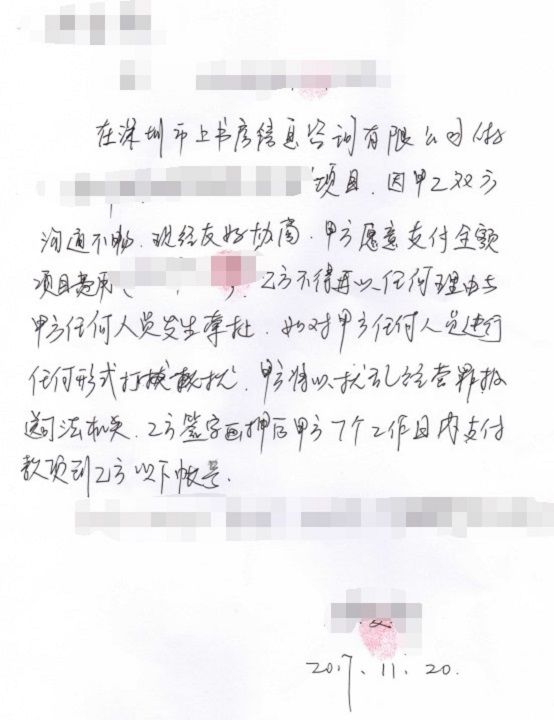 在深圳市上书房信息咨询有限公司做
项目,因甲乙双方
沟通不畅,现经友好协商,甲方愿意支付全额
项目费用 乙方不得再以任何理由与
甲方任何人员发生牵扯,如对甲方任何人员进行
任何形式打搅 扰,甲方将以扰乱经营罪报
送司法机关,乙方签字画押后甲方7个工作日内支付
款项到乙方以下帐号.
2017.11.20.